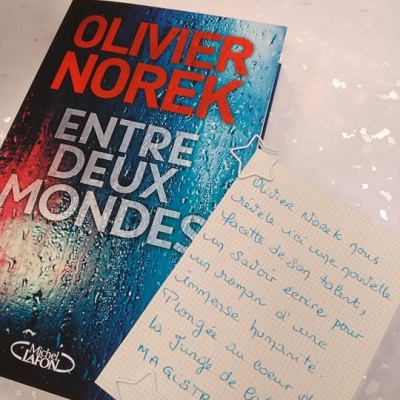 OLIVIER
NOREK
ENTRE
DEUX
MONDES
Michel
LAFON
Olivier Norek nous
révèle ici une nouvelle
facette de son talent,
un savoir écrire pour
un roman d'une
immense humanité
Plongée au coeur
la Jungle de